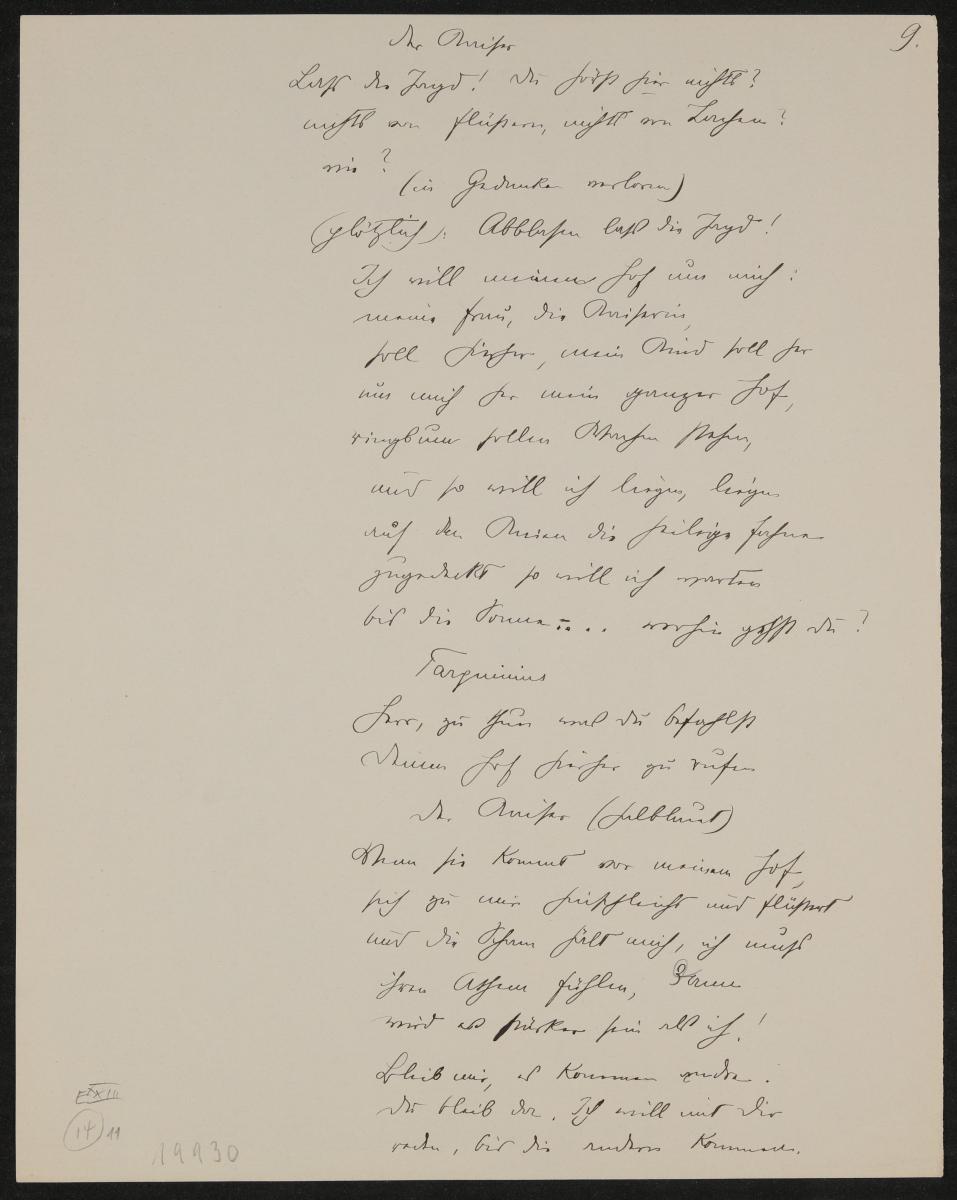 9.
Der Kaiser
Lass die Jagd! Du hörst hier nichts?
nichts von flüstern, nichts von Lachen?
wie?
(in Gedanken verloren)
(plötzlich): Abblasen lass die Jagd!
Ich will meinen Hof um mich:
meine Frau, die Kaiserin,
soll hierher, mein Kind soll her
um mich her mein ganzer Hof,
ringsum sollen Wachen stehen,
und so will ich liegen, liegen
auf den Knien die heilige Fahne
zugedeckt so will ich warten
bis die Sonne.... wohin gehst du?
Tarquinius
Herr, zu thun was du befahlst
Deinen Hof hierher zu rufen
Der Kaiser (halblaut)
Wenn sie kommt vor meinem Hof,
sich zu mir hinschleicht und flüstert
und die Scham hält mich, ich muss
ihren Athem fühlen, dann
wird es stärker sein als ich!
Bleib mir, es kommen andre.
Du bleib da. Ich will mit dir
reden, bis die andern kommen.
E IX III
14 11
19930